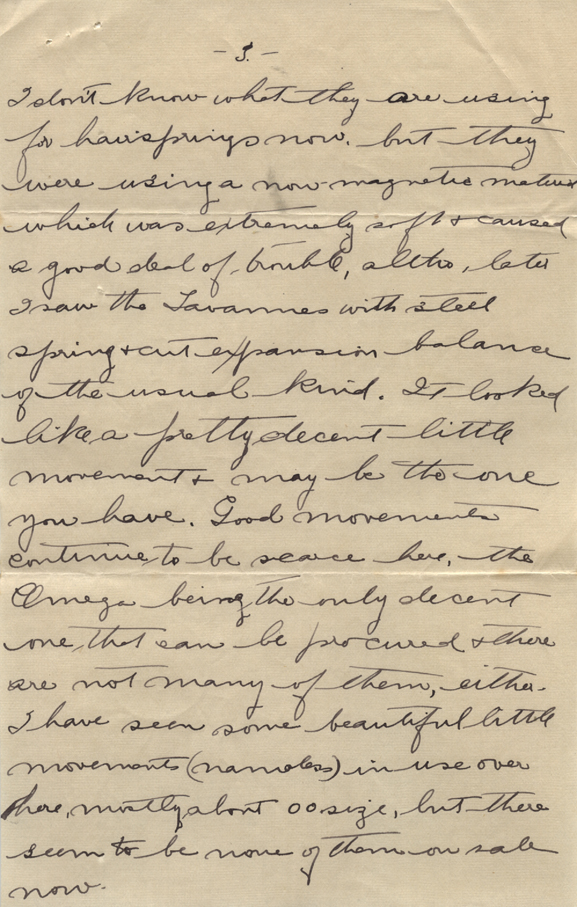 - 3. -
I don't know what they are using
for hairsprings now. but they
were using a non-magnetic material
which was extremely soft & caused
a good deal of trouble, altho, later
I saw the Tavannes with steel
spring & cut expansion balance
of the usual kind. It looked
like a pretty decent little
movement & may be the one
you have. Good movements
continue to be scarce here, the
Omega being the only decent
one, that can be procured & there
are not many of them, either.
I have seen some beautiful little
movements (nameless) in use over
here, mostly about 00 size, but there
seem to be none of them on sale
now.